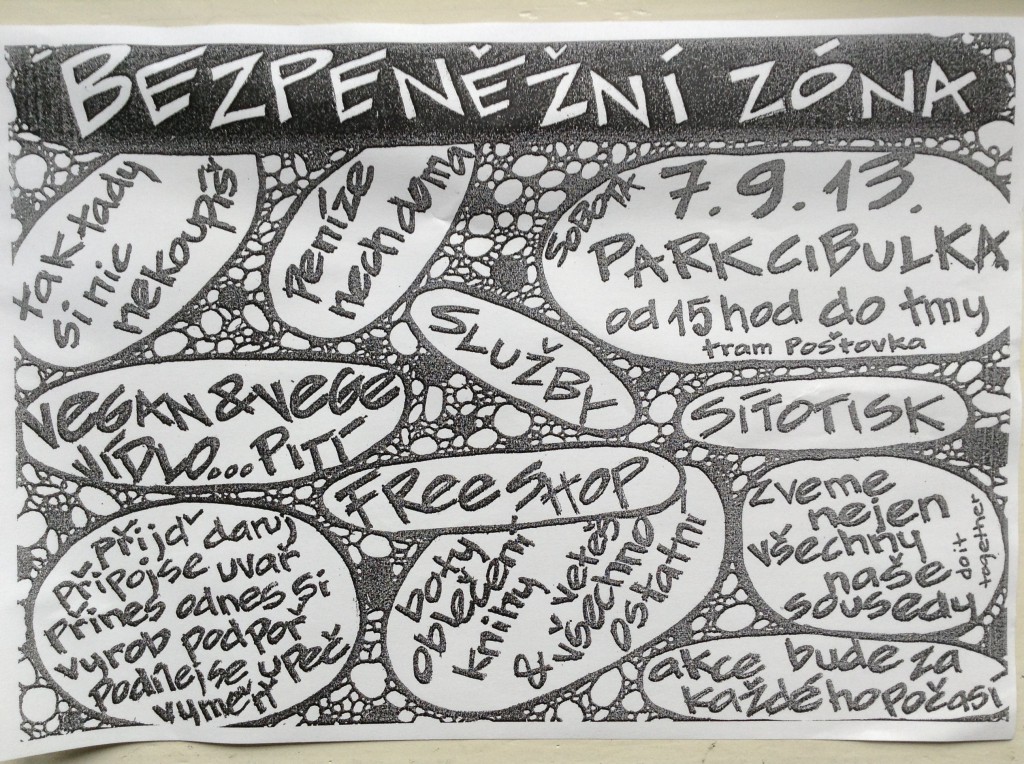 BEZPENĚŽNÍ ZÓNA
tak tady
si nic
nekoupíš
Peníze
nech doma
SOBOTA
7.9.13.
PARK CIBULKA
od 15 hod do tmy
tram Poštovka
SLUŽBY
VEGAN & VEGE
JÍDLO... PITÍ
SÍTOTISK
FREE SHOP
boty
oblečení
knihy
& veteš
všechno
ostatní
zveme
nejen
všechny
naše
sousedy
do it
together
přijď daruj
připoj se uvař
přines odnes si
vyrob podpoř
podílej se upeč
vyměň
akce bude za
každého počasí